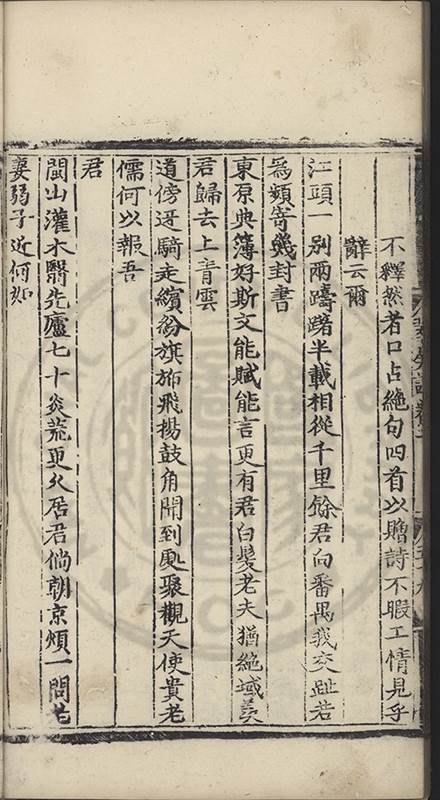 不釋然者口占絶句四首以贈詩不暇工情見乎
辭云爾
江頭一別兩躊躇半載相從千里餘君向番禺我交趾若
為頻寄幾封書
東原典簿好斯文能賦能言更有君白髮老夫猶絶域羨
君歸去上青雲
道傍迓騎走繽紛旗旆飛揚鼓角聞到處聚觀天使貴老
儒何以報吾
君
閩山灌木翳先廬七十炎荒更久居君倘朝京煩一問老
妻弱子近何如